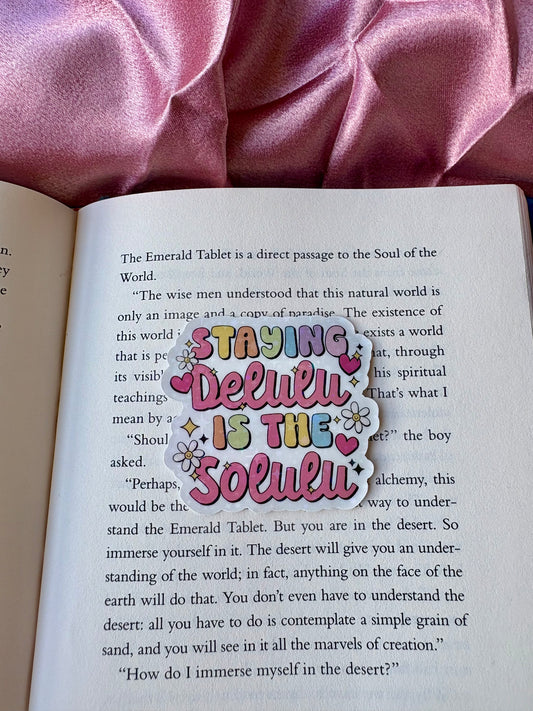 n.
ey
e
The Emerald Tablet is a direct passage to the Soul of the
World.
"The wise men understood that this natural world is
only an image and a copy of paradise. The existence of
this world i exists a world
that is pe at, through
its visibl his spiritual
teachings That's what I
mean by a
"Shoul et?" the boy
asked.
"Perhaps, alchemy, this
would be the way to under-
stand the Emerald Tablet. But you are in the desert. So
immerse yourself in it. The desert will give you an under-
standing of the world; in fact, anything on the face of the
earth will do that. You don't even have to understand the
desert: all you have to do is contemplate a simple grain of
sand, and you will see in it all the marvels of creation."
"How do I immerse myself in the desert?"
STAYING
Delulu
IS THE
Solulu